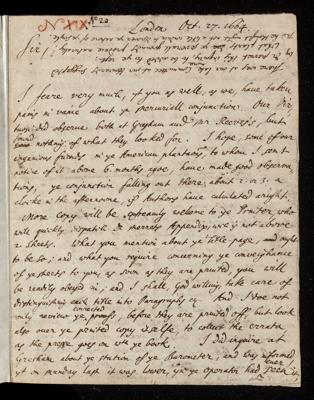 NXX No 20
London Oct. 27. 1664
Sir,
I feare very much, if you as well, as we, have taken
pains in vaine about ye mercuriall conjunction. Our Bre
did observe both at Gresham and Mr Reeves's, but
found nothing, of what they looked for. I hope, some of our
ingenious friends in ye American plantations, to whom I sent
notice of it above 6. months agoe, have made good observa
tions, ye conjunction falling out there, about 2. or 3. a
clocke in the afternoone, if Authors have calculated aright.
More Copy will be extreamly welcome to ye Printer, who
will quickly dispatch Dr Merrets Appendix, wch is not above
2. sheets. What you mention about ye title page, and ought
to be so; and what you require concerning ye conveighance
of ye sheets to you, as soon as they are printed, you will
be readily obeyed in; and I shall, God willing, take care of
distinguishing each title into Paragraphs &c. And I doe not
only review ye corrected proofs, before they are printed off, but look
also over ye printed copy itselfe, to collect the errata
as the presse goes on wth ye book. I did inquire at
Gresham about ye station of ye Barometer, and was informed,
yt on monday last it was lower, yn ye operator had ever seen it